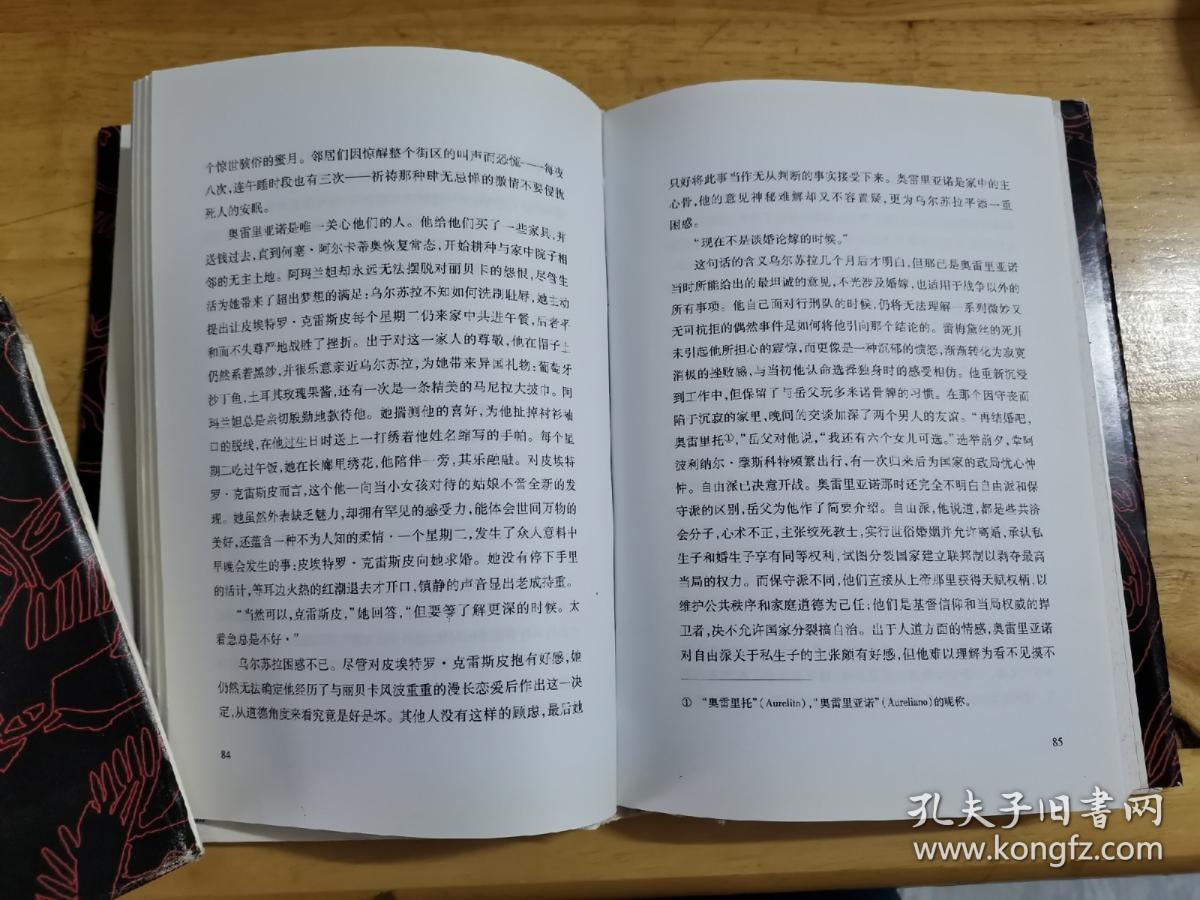 个惊世骇俗的蜜月。邻居们因惊醒整个街区的叫声而恐慌——每夜
八次,连午睡时段也有三次——祈祷那种肆无忌惮的激情不要侵扰
死人的安眠。
奥雷里亚诺是唯一关心他们的人。他给他们买了一些家具,并
送钱过去,直到何塞·阿尔卡蒂奥恢复常态,开始耕种与家中院子相
邻的无主土地。阿玛兰妲却永远无法摆脱对丽贝卡的怨恨,尽管生
活为她带来了超出梦想的满足:乌尔苏拉不知如何洗刷耻辱,她主动
提出让皮埃特罗·克雷斯皮每个星期二仍来家中共进午餐,后者平
和而不失尊严地战胜了挫折。出于对这一家人的尊敬,他在帽子上
仍然系着黑纱,并很乐意亲近乌尔苏拉,为她带来异国礼物:葡萄牙
沙丁鱼,土耳其玫瑰果酱,还有一次是一条精美的马尼拉大披巾。阿
玛兰妲总是亲切殷勤地款待他。她揣测他的喜好,为他扯掉衬衫袖
口的脱线,在他过生日时送上一打绣着他姓名缩写的手帕。每个星
期二吃过午饭,她在长廊里绣花,他陪伴一旁,其乐融融。对皮埃特
罗·克雷斯皮而言,这个他一向当小女孩对待的姑娘不啻全新的发
现。她虽然外表缺乏魅力,却拥有罕见的感受力,能体会世间万物的
美好,还蕴含一种不为人知的柔情·一个星期二,发生了众人意料中
早晚会发生的事:皮埃特罗·克雷斯皮向她求婚。她没有停下手里
的活计,等耳边火热的红潮退去才开口,镇静的声音显出老成持重。
“当然可以,克雷斯皮,”她回答,“但要等了解更深的时候。太
着急总是不好·”
乌尔苏拉困惑不已。尽管对皮埃特罗·克雷斯皮抱有好感,她
仍然无法确定他经历了与丽贝卡风波重重的漫长恋爱后作出这一决
定,从道德角度来看究竟是好是坏。其他人没有这样的顾虑,最后她
84
只好将此事当作无从判断的事实接受下来。奥雷里亚诺是家中的主
心骨,他的意见神秘难解却又不容置疑,更为乌尔苏拉平添一重
困惑。
“现在不是谈婚论嫁的时候。”
这句话的含义乌尔苏拉几个月后才明白,但那已是奥雷里亚诺
当时所能给出的最坦诚的意见,不光涉及婚嫁,也适用于战争以外的
所有事项。他自己面对行刑队的时候,仍将无法理解一系列微妙又
无可抗拒的偶然事件是如何将他引向那个结论的。蕾梅黛丝的死并
未引起他所担心的震惊,而更像是一种沉郁的愤怒,渐渐转化为寂寞
消极的挫败感,与当初他认命选择独身时的感受相仿。他重新沉浸
到工作中,但保留了与岳父玩多米诺骨牌的习惯。在那个因守丧而
陷于沉寂的家里,晚间的交谈加深了两个男人的友谊。“再结婚吧,
奥雷里托①,”岳父对他说,“我还有六个女儿可选。”选举前夕,堂阿
波利纳尔·摩斯科特频繁出行,有一次归来后为国家的政局忧心忡
忡。自由派已决意开战。奥雷里亚诺那时还完全不明白自由派和保
守派的区别,岳父为他作了简要介绍。自由派,他说道,都是些共济
会分子,心术不正,主张绞死教士,实行世俗婚姻并允许离婚,承认私
生子和婚生子享有同等权利,试图分裂国家建立联邦制以剥夺最高
当局的权力。而保守派不同,他们直接从上帝那里获得天赋权柄,以
维护公共秩序和家庭道德为己任;他们是基督信仰和当局权威的捍
卫者,决不允许国家分裂搞自治。出于人道方面的情感,奥雷里亚诺
对自由派关于私生子的主张颇有好感,但他难以理解为看不见摸不
① “奥雷里托”(Aurelito),“奥雷里亚诺”(Aureliano)的昵称。
85
孔夫子旧书网
www.kongfz.com